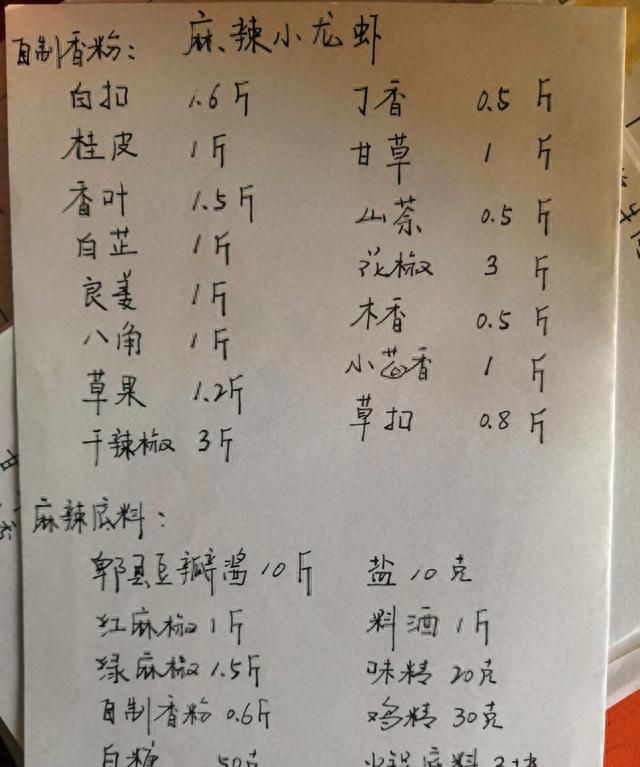 麻辣小龙虾
自制香粉:
白扣 1.6斤 丁香 0.5斤
桂皮 1斤 甘草 1斤
香叶 1.5斤 山萘 0.5斤
白芷 1斤 花椒 3斤
良姜 1斤 木香 0.5斤
八角 1斤 小茴香 1斤
草果 1.2斤 草扣 0.8斤
干辣椒 3斤
麻辣底料:
郫县豆瓣酱 10斤 盐 10克
红麻椒 1斤 料酒 1斤
绿麻椒 1.5斤 味精 20克
自制香粉 0.6斤 鸡精 30克
白糖 50克 火锅底料 3